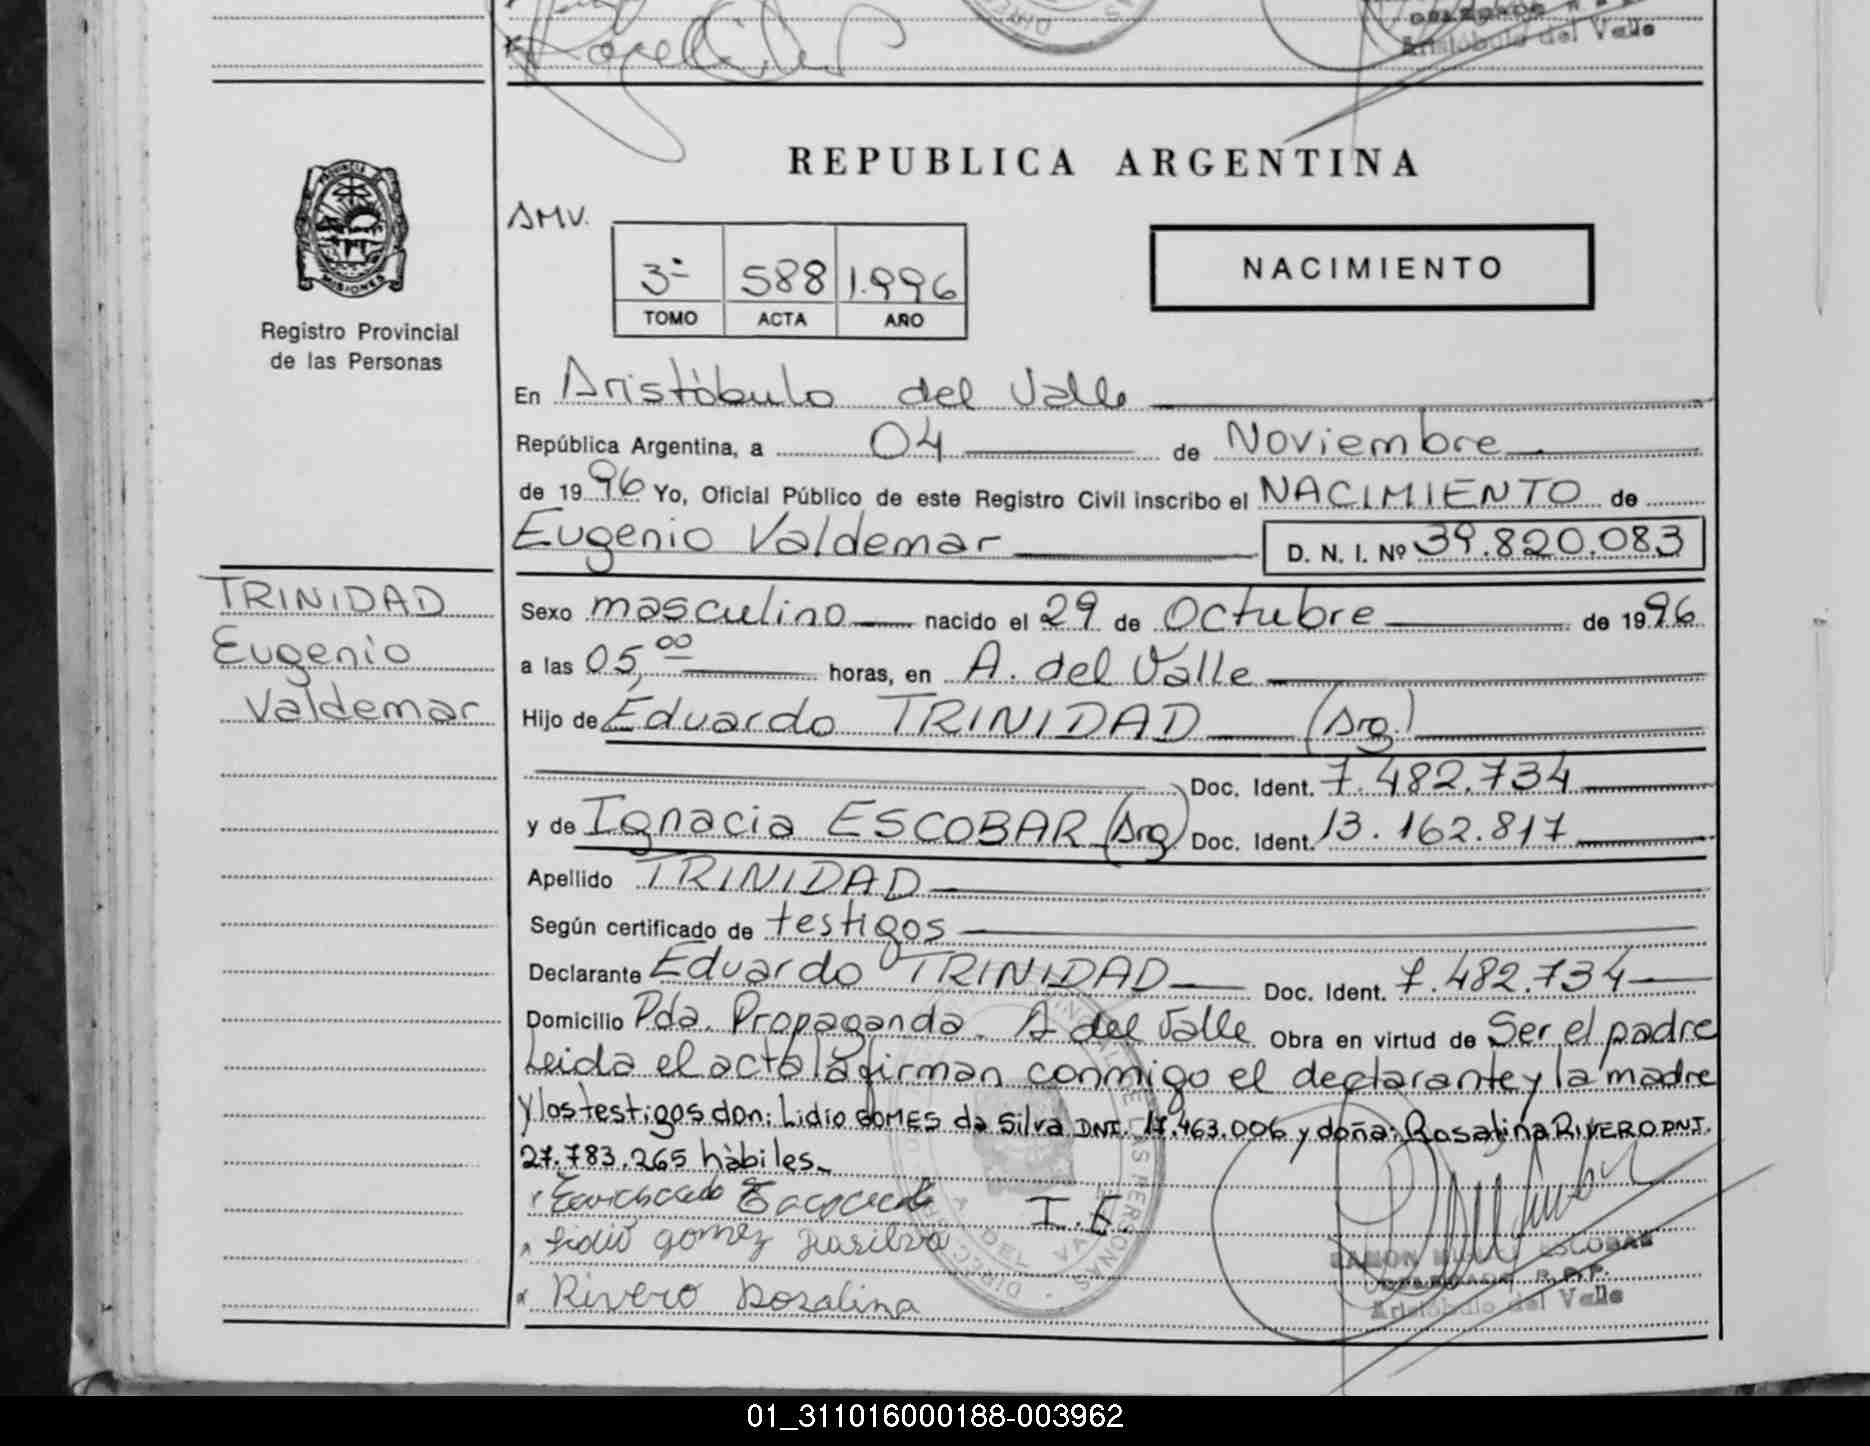 DELEGADO R.
Aristóbulo del Valle
REPUBLICA ARGENTINA
PROVINCIA
MISIONES
Registro Provincial
de las Personas
AMV.
3º 588 1.996
TOMO ACTA AÑO
NACIMIENTO
En Aristóbulo del Valle
República Argentina, a 04 de Noviembre
de 1996 Yo, Oficial Público de este Registro Civil inscribo el NACIMIENTO de
Eugenio Valdemar D. N. I. Nº 39.820.083
TRINIDAD
Eugenio
Valdemar
Sexo masculino nacido el 29 de Octubre de 1996
a las 05,00 horas, en A. del Valle
Hijo de Eduardo TRINIDAD (Arg.)
Doc. Ident. 7.482.734
y de Ignacia ESCOBAR (Arg) Doc. Ident. 13.162.817
Apellido TRINIDAD
Según certificado de testigos
Declarante Eduardo TRINIDAD Doc. Ident. 7.482.734
Domicilio Pda. Propaganda. A del Valle Obra en virtud de Ser el padre
Leida el acta la firman conmigo el declarante y la madre
y los testigos don: Lidio GOMES da Silva DNI. 17.463.006 y doña: Rosalina RIVERO DNI.
27.783.265 hàbiles.
I.E
Lidio gomez
Rivero Rosalina
RAMON ESCOBAR
DELEGADO R.P.P.
Aristóbulo del Valle
01_311016000188-003962